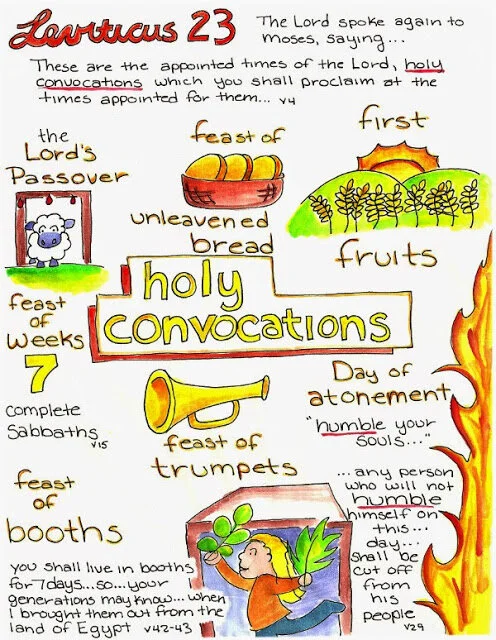 Leviticus 23
The Lord spoke again to
moses, saying...
These are the appointed times of the Lord, holy
convocations which you shall proclaim at the
times appointed for them... v4
the
Lord's
Passover
feast of
unleavened
bread
first
fruits
holy
convocations
feast
of
weeks
7
complete
Sabbaths
v15
feast of
trumpets
Day of
atonement
"humble your
souls..."
...any person
who will not
humble
himself on
this...
day...
shall be
cut off
from
his
people
v29
feast
of
booths
you shall live in booths
for 7 days...so...your
generations may know...when
I brought them out from the
land of Egypt v42-43